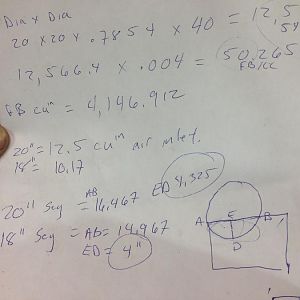 Dia x Dia
20 x 20 x .7854 x 40 = 12,5
12,566.4 x .004 = 50.265
cu in = 4,146.912
20" = 12.5 cu in air inlet.
18" = 10.17
20" Seg AB = 16,467 ED 4,325
18" Seg = AB = 14,967
ED = 4"
A E B
D